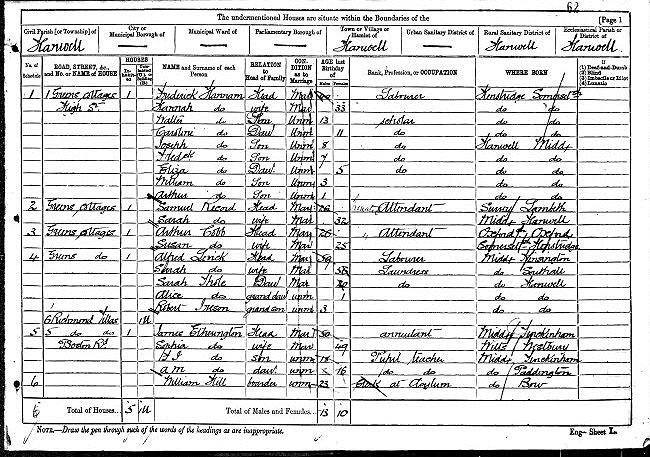 62
The undermentioned Houses are situate within the Boundaries of the
[Page 1
Civil Parish [or Township] of
Hanwell
City or Municipal Borough of
Municipal Ward of
Parliamentary Borough of
Town or Village or Hamlet of
Hanwell
Urban Sanitary District of
Rural Sanitary District of
Hanwell
Ecclesiastical Parish or District of
Hanwell
No. of Schedule
ROAD, STREET, &c., and No. or NAME of HOUSE
HOUSES
NAME and Surname of each Person
RELATION to Head of Family
CONDITION as to Marriage
AGE last Birthday of
Males Females
Rank, Profession, or OCCUPATION
WHERE BORN
If (1) Deaf-and-Dumb (2) Blind (3) Imbecile or Idiot (4) Lunatic
1 1 Greens Cottages 1 Frederick Hannam Head Mar Labourer Somerset
High St. Hannah do wife Mar 33 do do
Walter do Son Unm 13 scholar do do
do Daur Unm 11 do do do
Joseph do Son Unm 8 do Hanwell Middx
Fredck do Son Unm 7 do do do
Eliza do Daur Unm 5 do do do
William do Son Unm 3 do do
Arthur do Son Unm 1 do do
2 Greens Cottages 1 Samuel Head Mar Attendant Surrey Lambeth
Sarah do wife Mar 32 Middx Hanwell
3 Greens Cottages 1 Arthur Cobb Head Mar 26 Attendant Oxford
Susan do wife Mar 25 Somerset
4 Greens do 1 Alfred Head Mar Labourer Middx Kensington
Sarah do wife Mar 58 Laundress do Southall
Sarah Daur Mar do do Hanwell
Alice do grand daur unm 1 do do
Robert grand son unm 3 do do
6 Richmond Villas 1U
5 5 do do 1 James Etherington Head Mar annuitant Middx Twickenham
Boston Rd Sophia do wife Mar 49 Wilts Westbury
do son unm Pupil teacher Middx Twickenham
do daur unm 16 do do do Paddington
6 William Hill boarder unm 23 Clerk at Asylum do Bow
6 Total of Houses... 5 1U Total of Males and Females... 13 10
NOTE.—Draw the pen through such of the words of the headings as are inappropriate.
Eng—Sheet L.